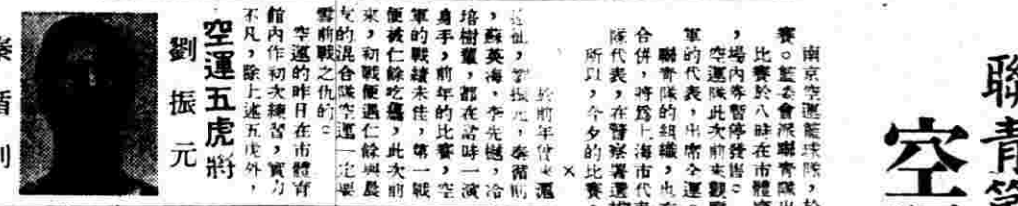 聯青
空
南京空運籃球隊,於
賽。籃委會派聯青隊出
比賽於八時在市體育
,場內券暫停發售。
空運隊此次前來觀
軍的代表,出席全運
聯青隊的組織,也在
合併,將爲上海市代表
隊代表,在警察署選
所以,今夕的比賽
×
於前年曾來滬
仙,劉振元,秦循前
,蘇英海,李先樾,冷
培樹輩,都在當時一演
身手,前年的比賽,空
軍的戰績未佳,第一戰
便被仁餘吃癟,此次前
來,初戰便遇仁餘與晨
友的混合隊空運一定要
雪前戰之仇的。
空運的昨日在市體育
館內作初次練習,實力
不凡,除上述五虎外,
空運五虎將
劉振元
秦循